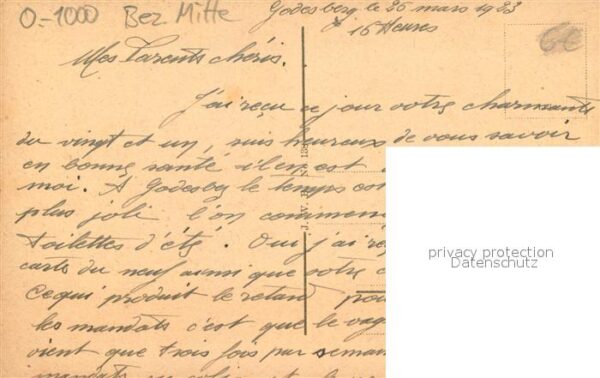 0=-1000 Bez Mitte
Godesberg le 25 mars 1923
16 Heures
6€
Mes Parents chéris.
J'ai reçu ce jour votre charmante
du vingt et un, suis heureux de vous savoir
en bonne santé il en est
moi. À Godesberg le temps est
plus joli l'on commen
toilettes d'été. Oui j'ai re
carte du neuf ainsi que votre c
Ce qui produit le retard pou
les mandats c'est que le vag
vient que trois fois par seman
mandats
privacy protection
Datenschutz